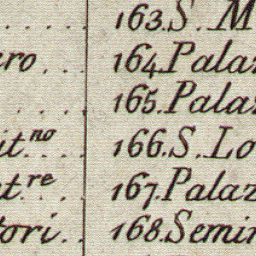 ..... 163. S. M
ro ... 164. Palaz
..... 165. Palaz
it.no 166. S. Lo
t.re 167. Palaz
tori .. 168. Semin